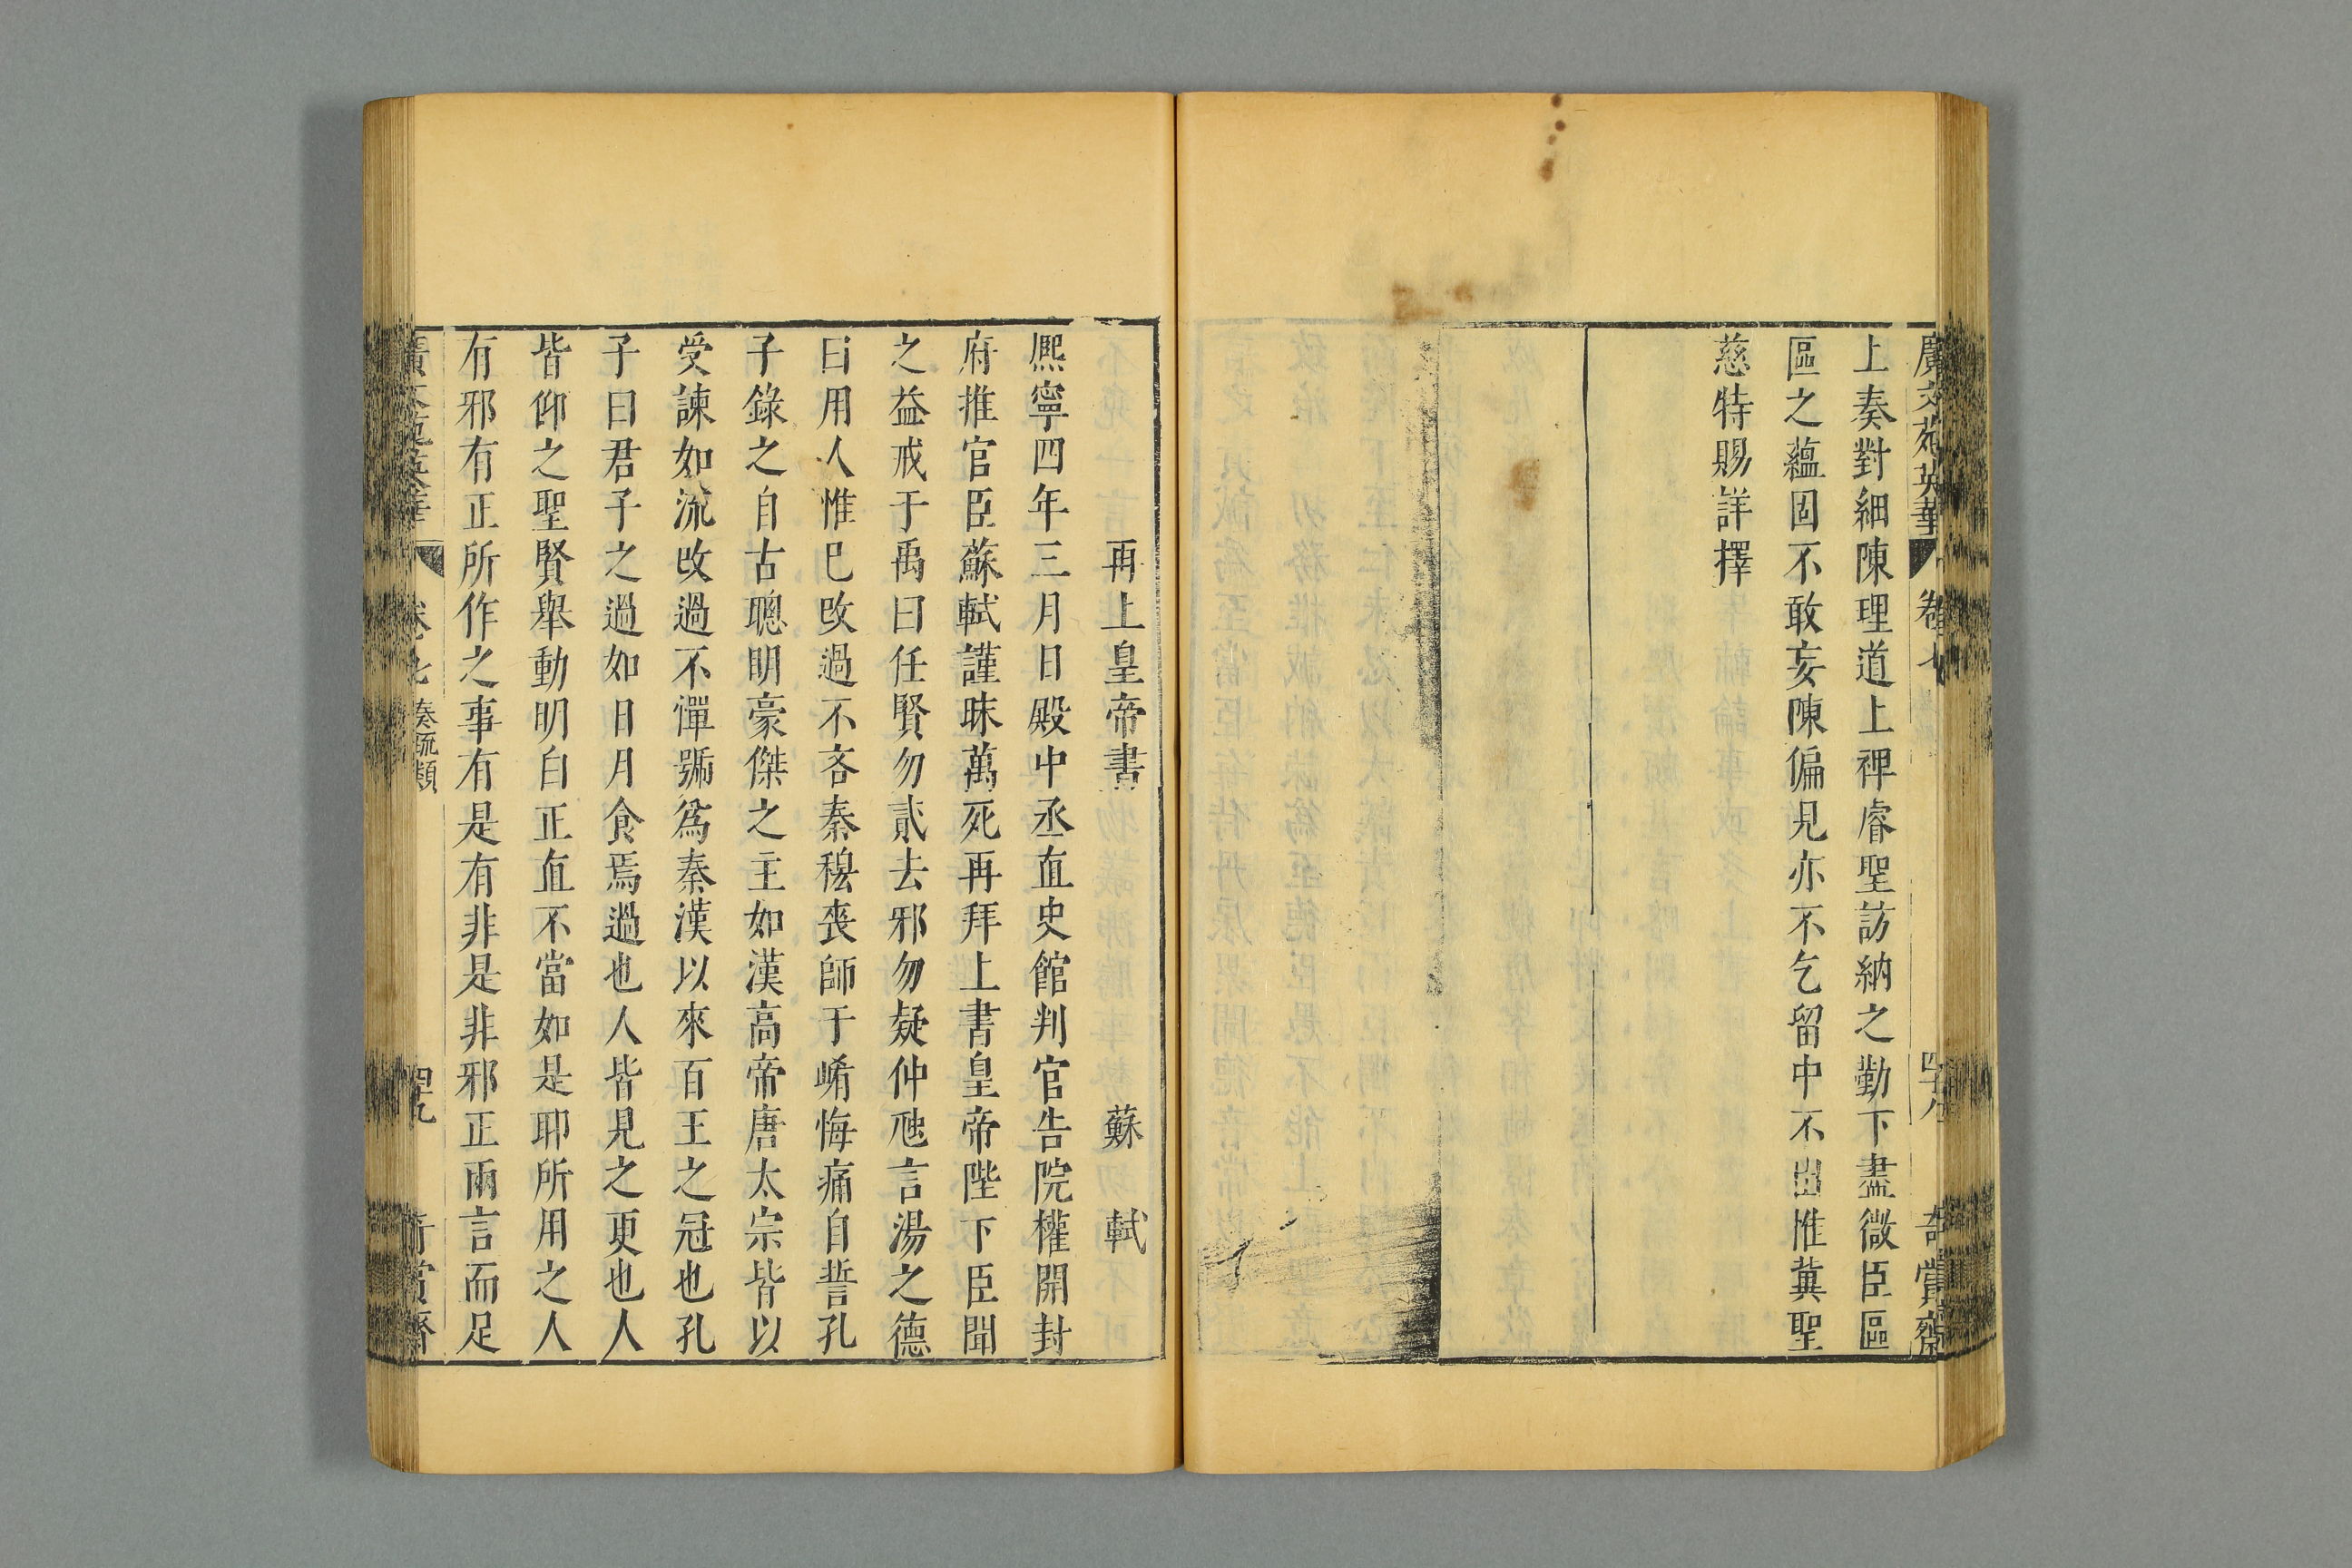 廣文苑英華 卷七 四十八 奇賞齋
上奏對細陳理道上禆睿聖訪納之勤下盡微臣區
區之蘊固不敢妄陳偏見亦不乞留中不出惟冀聖
慈特賜詳擇
再上皇帝書 蘇軾
熈寧四年三月日殿中丞直史館判官告院權開封
府推官臣蘇軾謹昧萬死再拜上書皇帝陛下臣聞
之益戒于禹曰任賢勿貳去邪勿疑仲虺言湯之德
曰用人惟巳改過不吝秦穆喪師于崤悔痛自誓孔
子錄之自古聰明豪傑之主如漢高帝唐太宗皆以
受諫如流改過不憚號爲秦漢以來百王之冠也孔
子曰君子之過如日月食焉過也人皆見之更也人
皆仰之聖賢舉動明白正直不當如是耶所用之人
有邪有正所作之事有是有非是非邪正兩言而足
廣文苑英華 卷七 奏疏類 四十九 奇賞齋